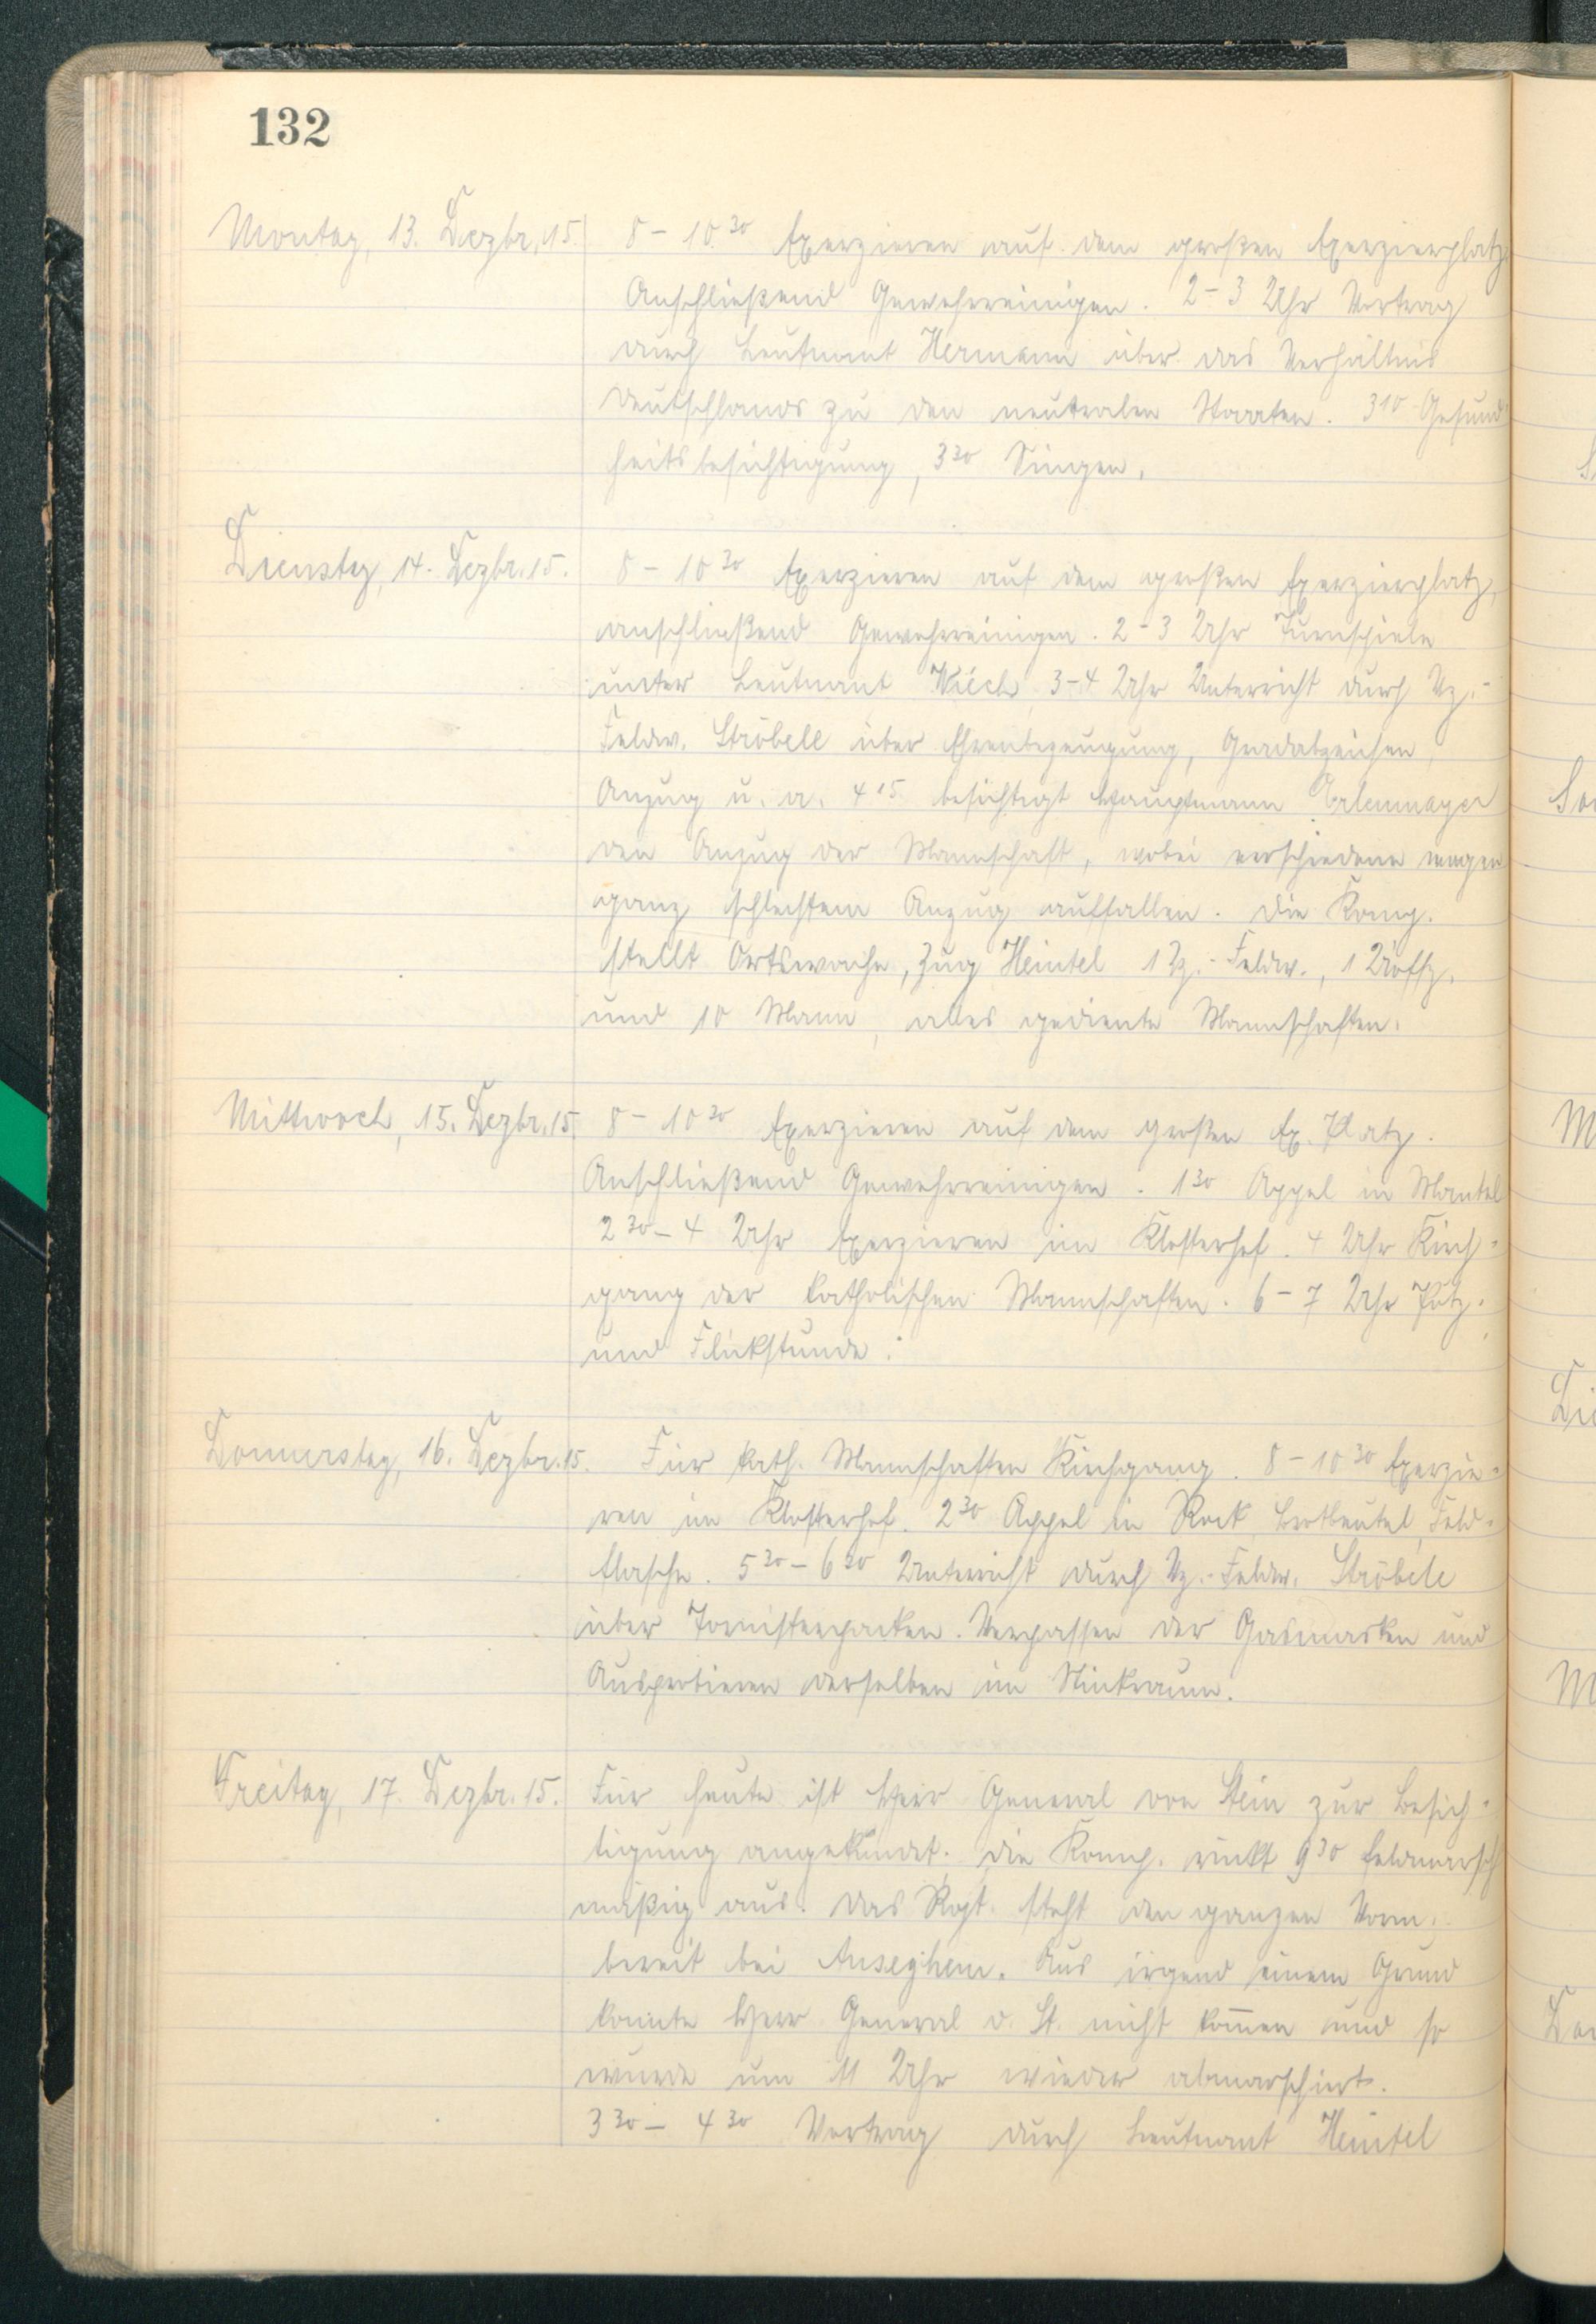 132
Montag, 13. Dezbr. 15.
8 – 10.30 Exerzieren auf dem großen Exerzierplatz
Anschließend Gewehrreinigen. 2 – 3 Uhr Vortrag
durch Leutnant Hermann über das Verhältnis
Deutschlands zu den neutralen Staaten. 310 Gesund-
heitsbesichtigung, 330 Singen.
Dienstag, 14. Dezbr. 15.
8 – 1030 Exerzieren auf dem großen Exerzierplatz,
anschließend Gewehrreinigen. 2 – 3 Uhr Turnspiele
unter Leutnant Wiech, 3 – 4 Uhr Unterricht durch Vz.-
Feldw. Ströbele über Ehrenbezeugung, Gradabzeichen,
Anzug u. a. 415 besichtigt Hauptmann Erlenmayer
den Anzug der Mannschaft, wobei verschiedene wegen
ganz schlechtem Anzug auffallen. Die Komp.
stellt Ortswache, Zug Heintel 1 Vz.-Feldw., 1 Uoffz.
und 10 Mann, alles gediente Mannschaften.
Mittwoch, 15. Dezbr. 15.
8 – 1030 Exerzieren auf dem großen Ex. Platz.
Anschließend Gewehrreinigen. 130 Appel in Mantel
230 – 4 Uhr Exerzieren im Klosterhof. 4 Uhr Kirch=
gang der katholischen Mannschaften. 6 – 7 Uhr Putz-
und Flickstunde.
Donnerstag, 16. Dezbr. 15.
Für kath. Mannschaften Kirchgang. 8 – 1030 Exerzie=
ren im Klosterhof. 230 Appel in Rock, Brotbeutel, Feld=
flasche. 530 – 630 Unterricht durch Vz.-Feldw. Ströbele
über Tornisterpacken. Verpassen der Gasmasken und
Ausprobieren derselben im Stinkraum.
Freitag, 17. Dezbr. 15.
Für heute ist Herr General von Stein zur Besich-
tigung angekündet. Die Komp. rückt 930 feldmarsch
mäßig aus. Das Rgt. steht den ganzen Vorm.
bereit bei Anseghem. Aus irgend einem Grund
konnte Herr General v. St. nicht kom̄en und so
wurde um 11 Uhr wieder abmarschiert.
330 – 430 Vortrag durch Leutnant Heintel